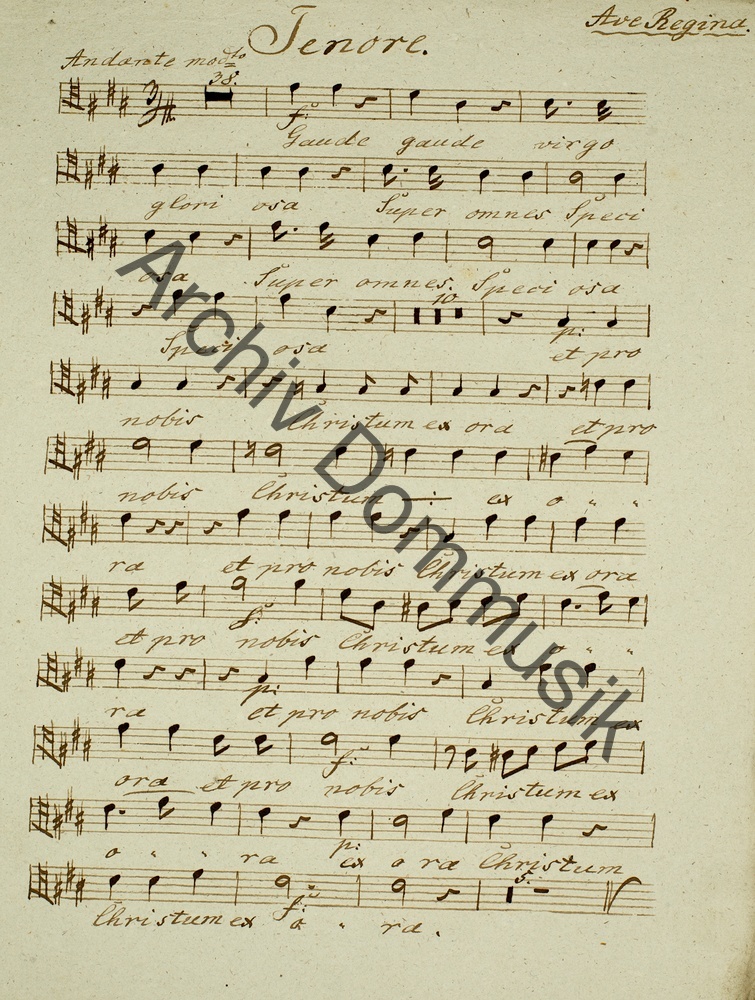 Ave Regina.
Tenore.
Andante mod.to
38.
f:
Gaude gaude virgo
glori osa Super omnes Speci
osa Super omnes. Speci osa
10
p:
Speci osa et pro
nobis Christum ex ora et pro
nobis Christum ex o " "
ra et pro nobis Christum ex ora
f:
et pro nobis Christum ex o " "
p:
ra et pro nobis Christum ex
f:
ora et pro nobis Christum ex
p:
o " " ra ex o ra Christum
5.
f:
Christum ex o " ra.
Archiv Dommusik